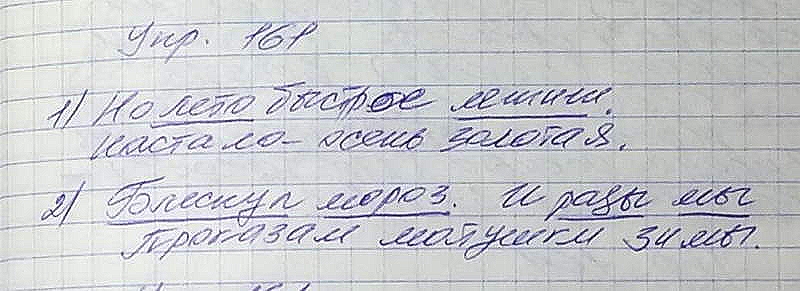 Упр. 161
1) Но лето быстрое летит.
настало - осень золотая.
2) Блеснул мороз. И рады мы
проказам матушки зимы.